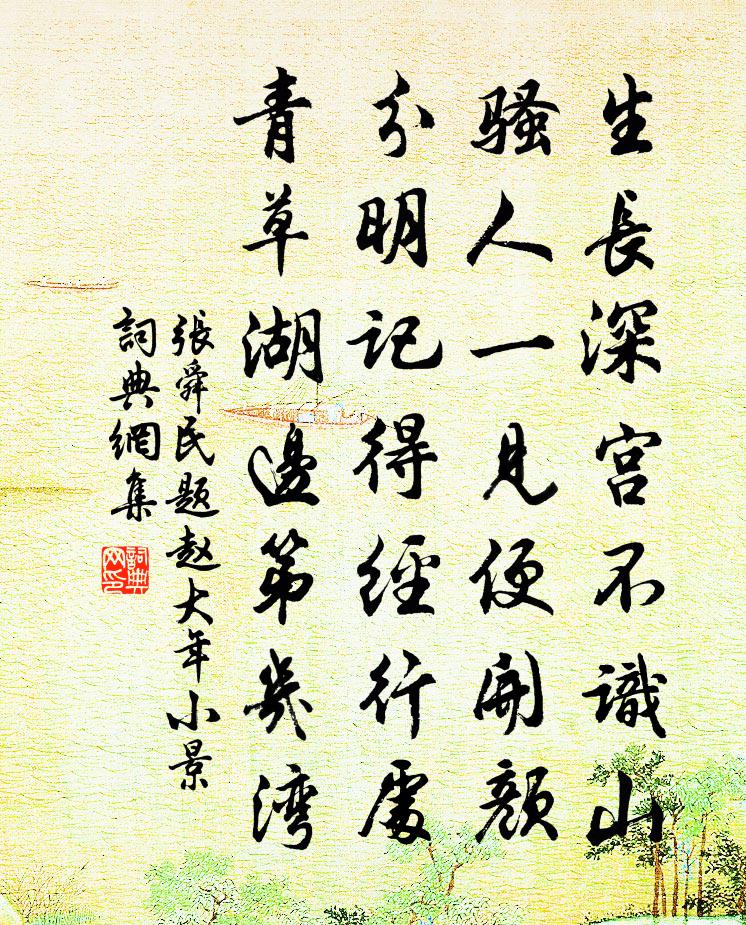 生長深宮不識山
騷人一見便開顏
分明記得經行處
青草湖邊第幾灣
張舜民題趙大年小景
詞典網集
詞典
网印